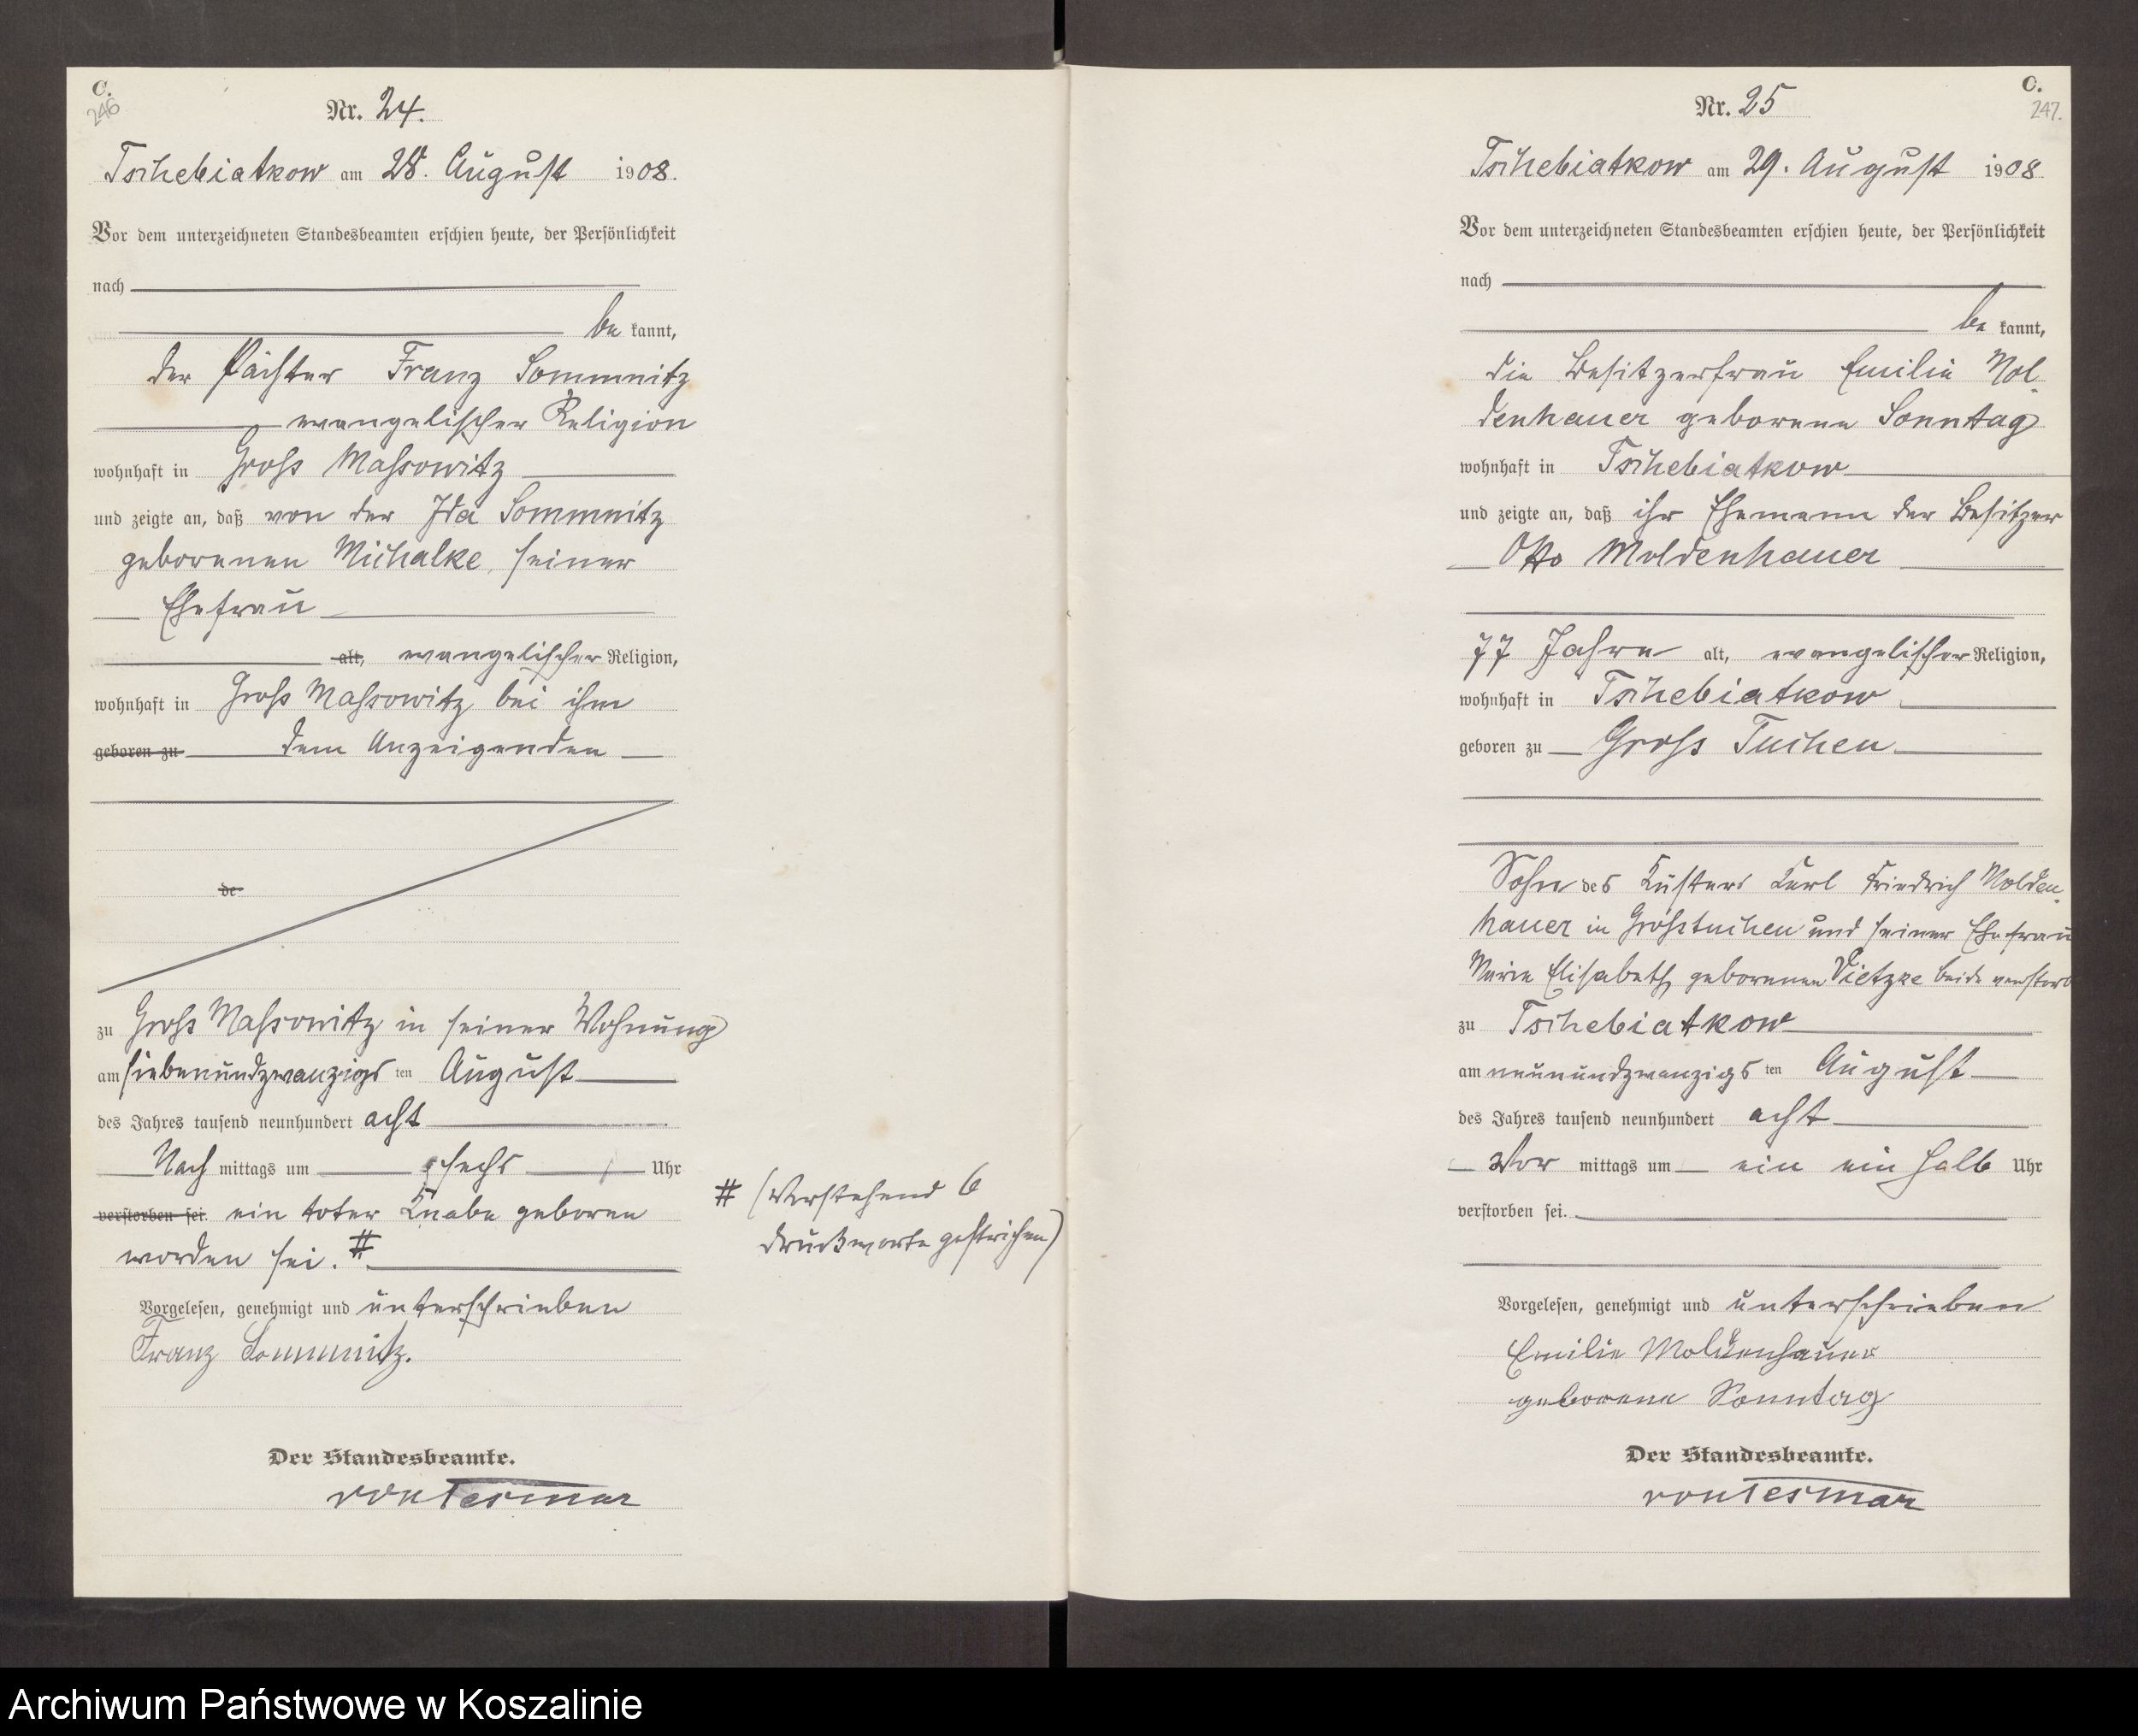 C.
246
Nr. 24.
Tschebiatkow am 28. August 1908.
Vor dem unterzeichneten Standesbeamten erschien heute, der Persönlichkeit
nach
be kannt,
der Pächter Franz Sommnitz
evangelischer Religion
wohnhaft in Gross Massowitz
und zeigte an, daß von der Ida Sommnitz
geborenen Michalke, seiner
Ehefrau
alt, evangelischer Religion,
wohnhaft in Gross Massowitz bei ihm
geboren zu dem Anzeigenden
de
zu Gross Massowitz in seiner Wohnung
am siebenundzwanzigs ten August
des Jahres tausend neunhundert acht
Nach mittags um sechs Uhr
verstorben sei. ein toter Knabe geboren
worden sei. #
# (Vorstehend 6
Druckworte gestrichen)
Vorgelesen, genehmigt und unterschrieben
Franz Sommnitz.
Der Standesbeamte.
von Tesmar
C.
247.
Nr. 25
Tschebiatkow am 29. August 1908
Vor dem unterzeichneten Standesbeamten erschien heute, der Persönlichkeit
nach
be kannt,
die Besitzerfrau Emilie Mol-
denhauer geborene Sonntag
wohnhaft in Tschebiatkow
und zeigte an, daß ihr Ehemann der Besitzer
Otto Moldenhauer
77 Jahre alt, evangelischer Religion,
wohnhaft in Tschebiatkow
geboren zu Gross Tuchen
Sohn des Küsters Karl Friedrich Molden-
hauer in Grosstuchen und seiner Ehefrau
Marie Elisabeth geborenen Vietzke beide verstorb
zu Tschebiatkow
am neunundzwanzigs ten August
des Jahres tausend neunhundert acht
Vor mittags um ein ein halb Uhr
verstorben sei.
Vorgelesen, genehmigt und unterschrieben
Emilie Moldenhauer
geborene Sonntag
Der Standesbeamte.
von Tesmar
Archiwum Państwowe w Koszalinie